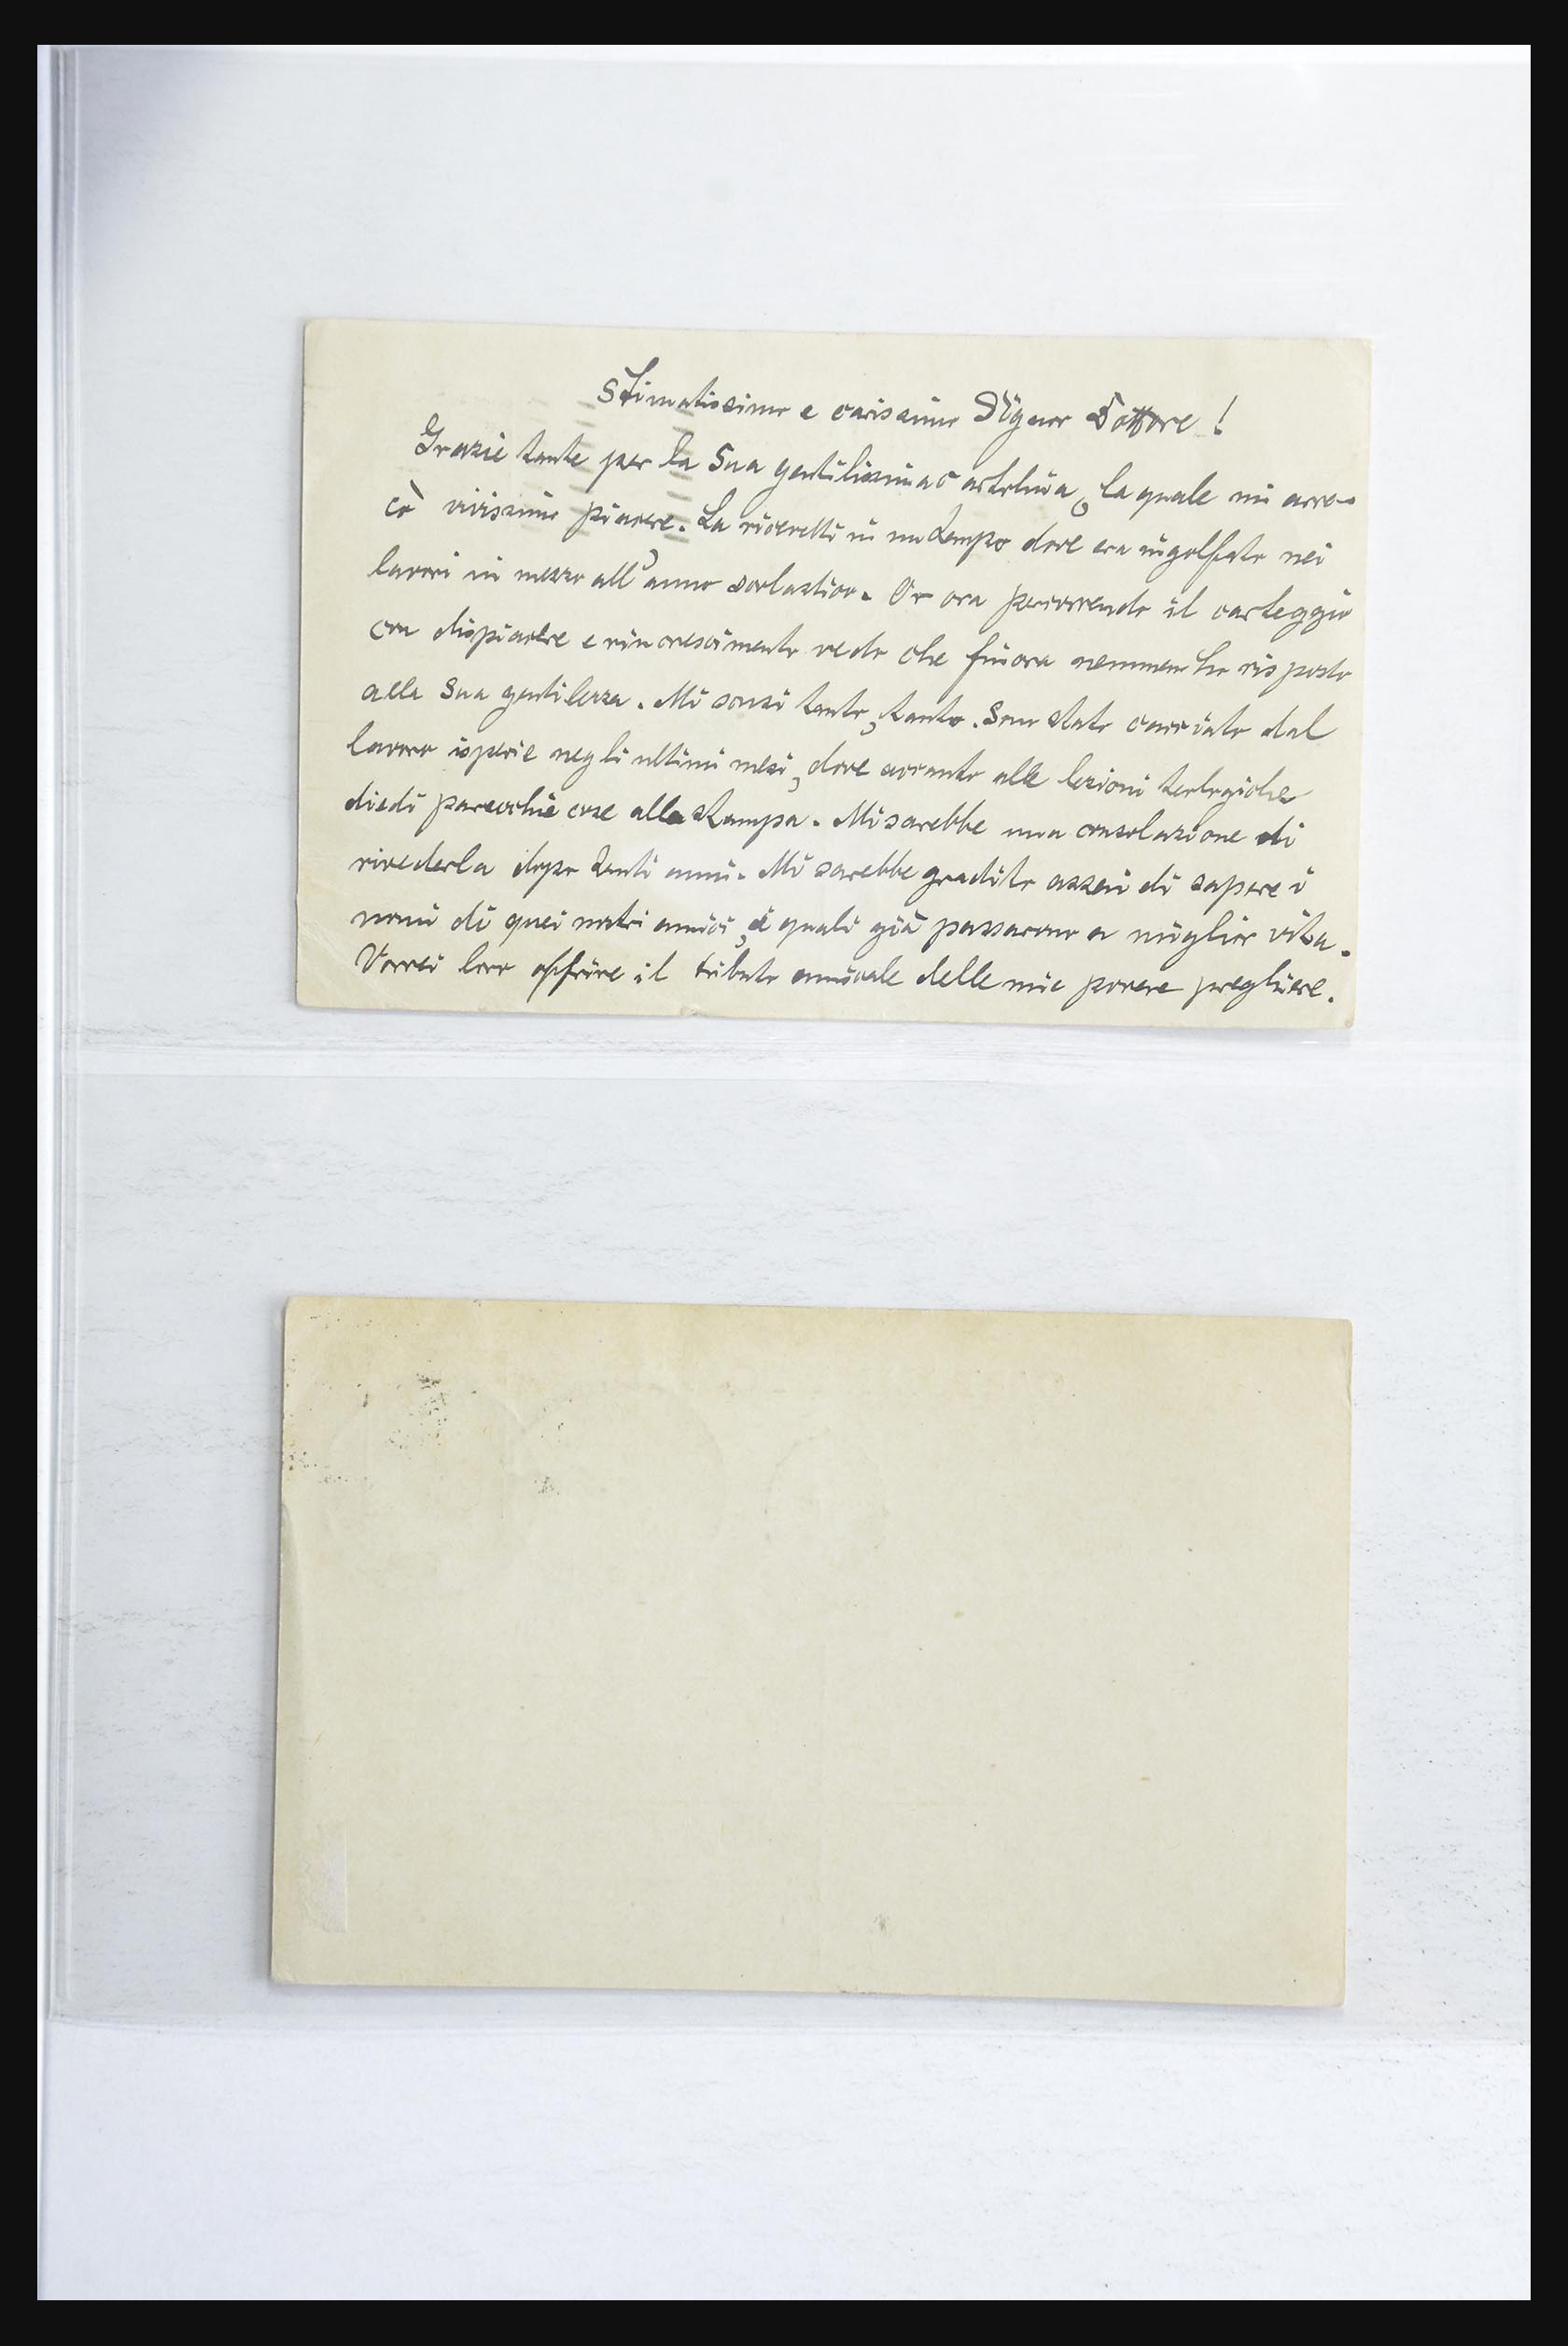 Stimatissimo e carissimo Signor Dottore !
Grazie tante per la Sua gentilissima cartolina, la quale mi arre-
cò vivissimo piacere. La ricevetti in un tempo dove era ingolfato nei
lavori in mezzo all'anno scolastico. Or ora percorrendo il carteggio
con dispiacere e rincrescimento vedo che finora nemmen ho risposto
alla Sua gentilezza. Mi scusi tanto, tanto. Son stato carriato dal
lavoro ispecie negli ultimi mesi, dove accanto alle lezioni teologiche
diedi parecchie cose alla stampa. Mi sarebbe una consolazione di
rivederla dopo tanti anni. Mi sarebbe gradito assai di sapere i
nomi di quei nostri amici, i quali già passarono a miglior vita.
Vorrei loro offrire il tributo amicale delle mie povere preghiere.